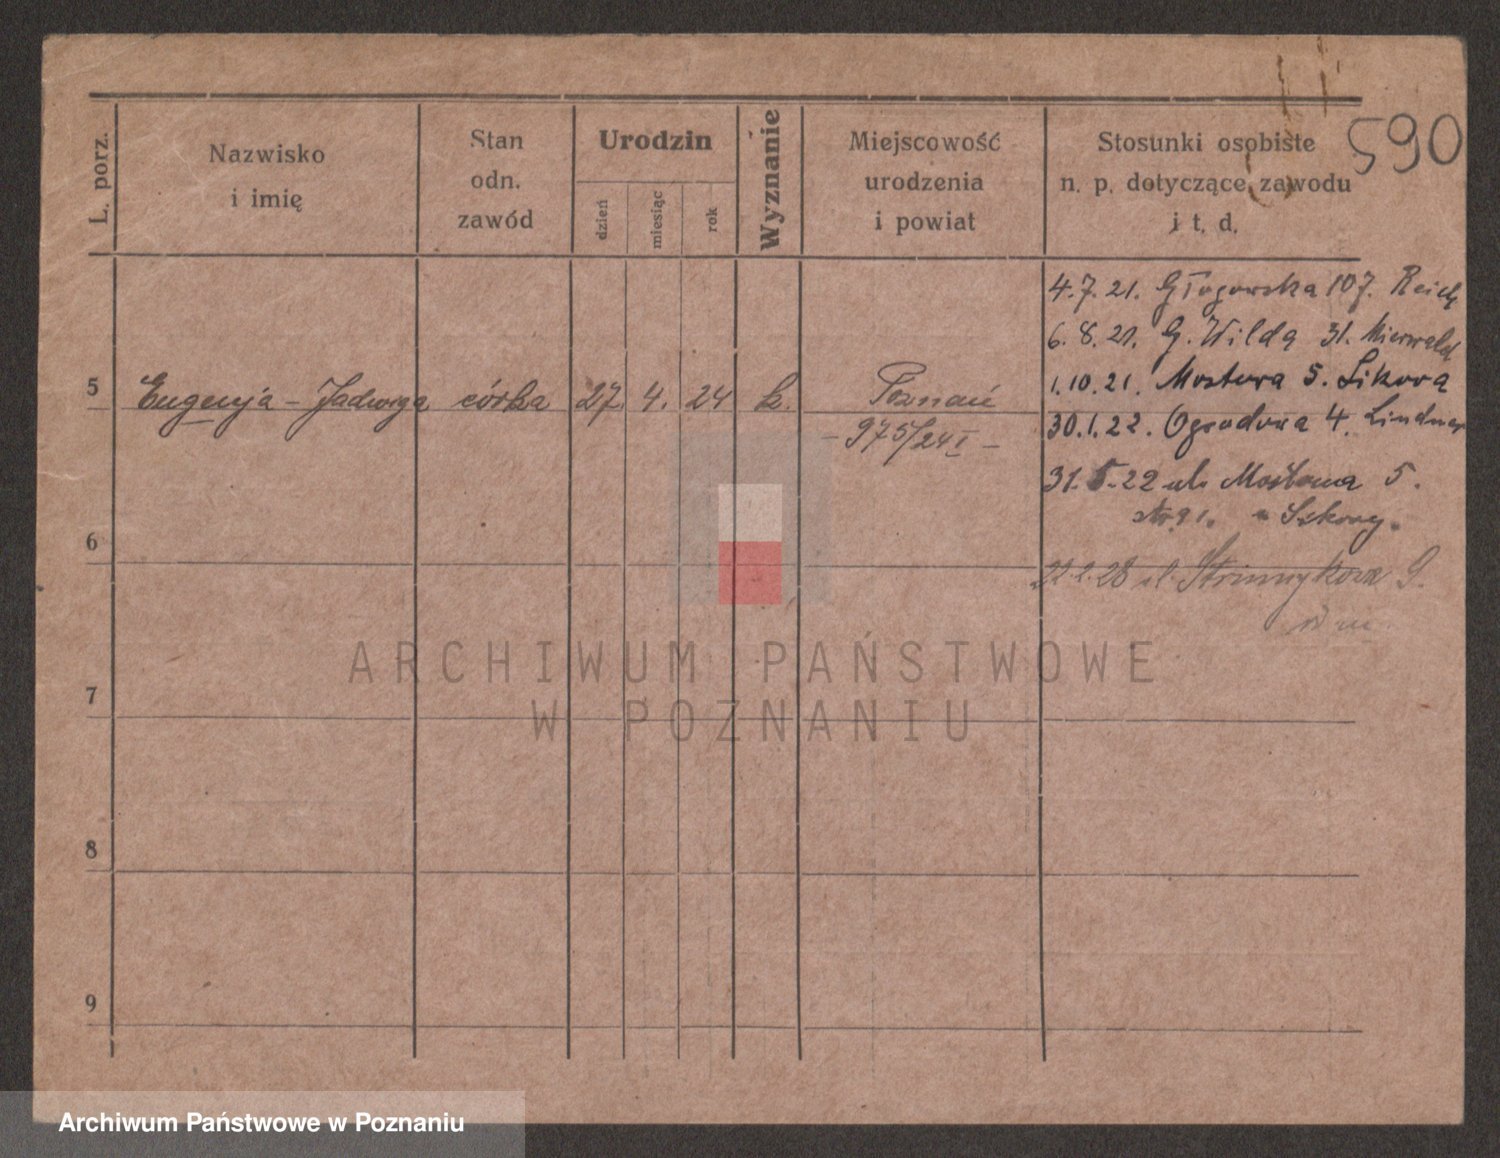 590
L. porz.
Nazwisko
i imię
Stan
odn.
zawód
Urodzin
dzień
miesiąc
rok
Wyznanie
Miejscowość
urodzenia
i powiat
Stosunki osobiste
n. p. dotyczące zawodu
i t. d.
4.7.21. Głogowska 107. Reich
6.8.21. G. Wilda 31.
1.10.21. Mostowa 5. Sikora
30.1.22. Ogrodowa 4. Lindner
5 Eugenja - Jadwiga córka 27. 4. 24 k. Poznań
- 975/24 I -
31.5.22 ul. Mostowa 5.
6
22.2.28 ul.
7
8
9
ARCHIWUM PAŃSTWOWE
W POZNANIU
Archiwum Państwowe w Poznaniu